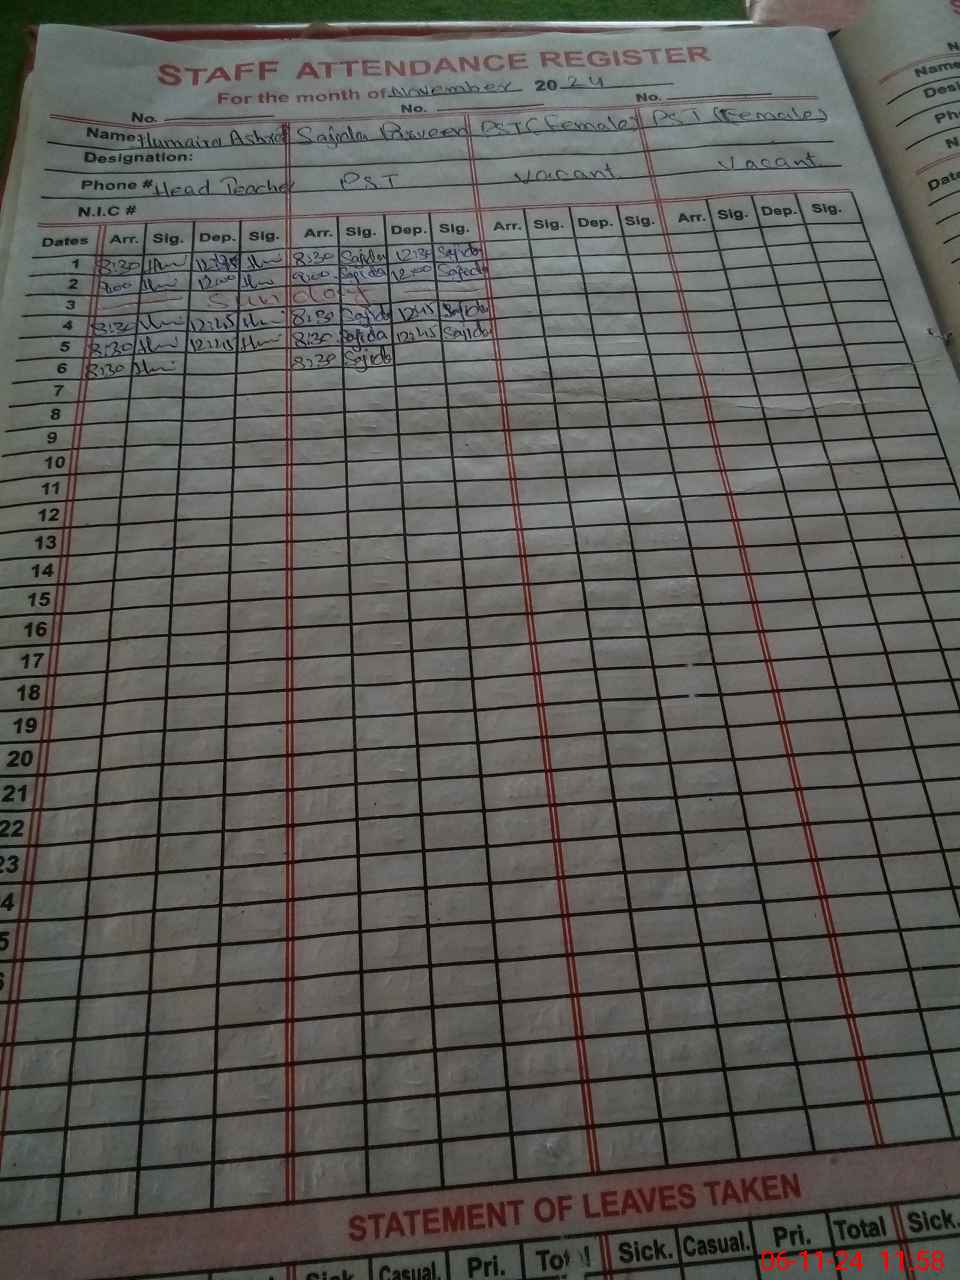 STAFF ATTENDANCE REGISTER
For the month of November 2024
No. No. No.
Name: Humaira Ashraf Sajida Parveen PST (Female) PST (Female)
Designation:
Phone # Head Teacher PST Vacant Vacant
N.I.C #
Dates Arr. Sig. Dep. Sig. Arr. Sig. Dep. Sig. Arr. Sig. Dep. Sig. Arr. Sig. Dep. Sig.
1 8:30 12:30 8:30 Sajida 12:30 Sajida
2 8:00 12:00 8:00 Sajida 12:00 Sajida
3 Sunday
4 8:30 12:45 8:30 Sajida 12:45 Sajida
5 8:30 12:45 8:30 Sajida 12:45 Sajida
6 8:30 8:30 Sajida
7
8
9
10
11
12
13
14
15
16
17
18
19
20
21
22
23
4
5
STATEMENT OF LEAVES TAKEN
Sick. Casual. Pri. Total Sick. Casual. Pri. Total Sick.
06-11-24 11:58